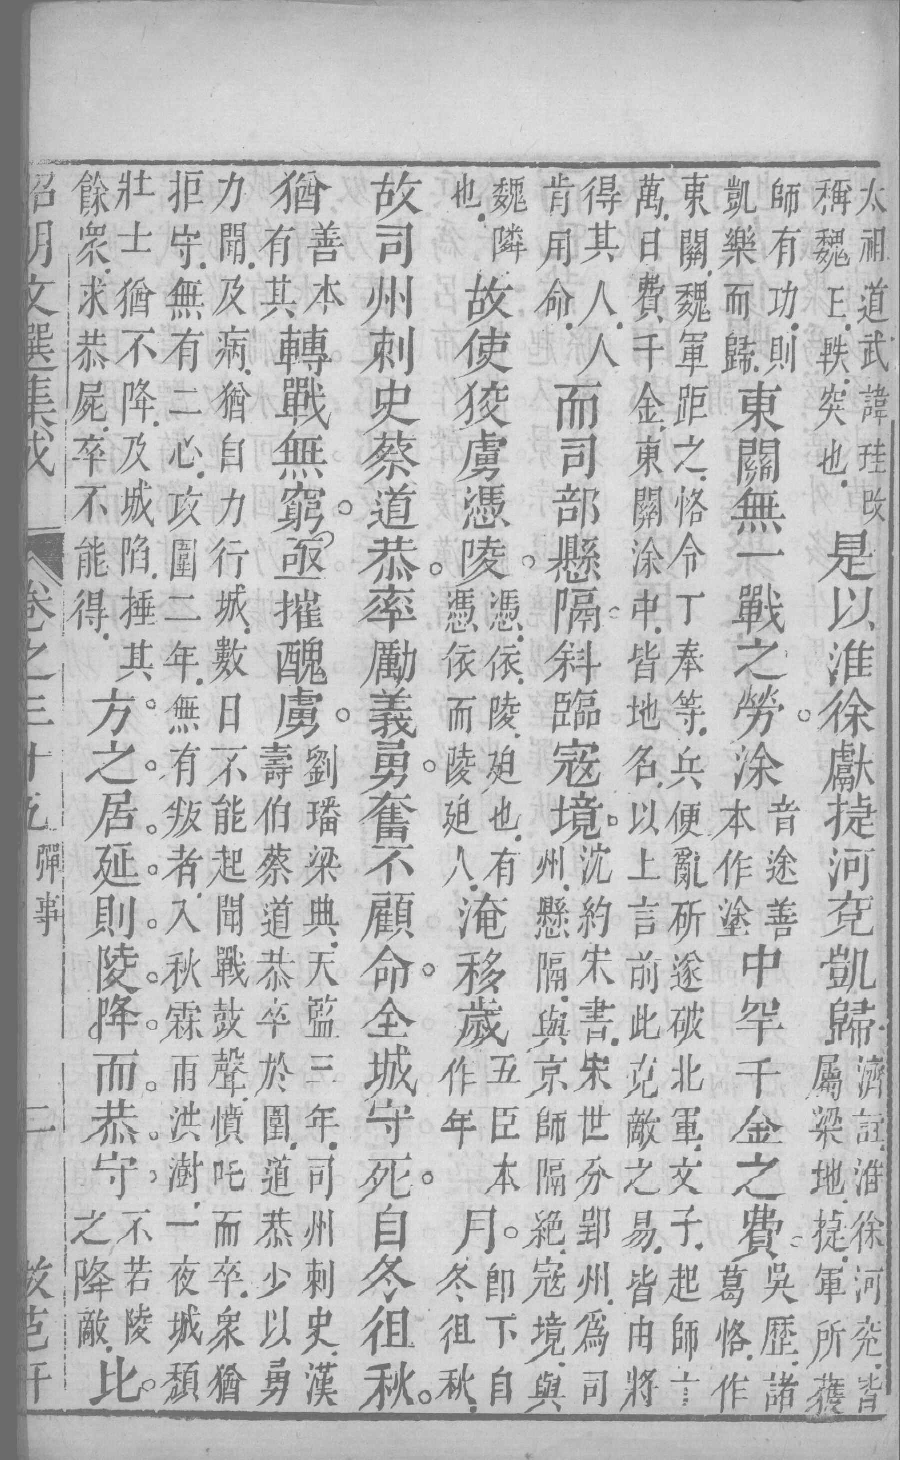 太祖道武諱珪改
稱魏王軼突也
是以淮徐獻捷河兗凱歸
濟註淮徐河兗皆
屬梁地捷軍所獲
師有功則
凱樂而歸
東關無一戰之勞涂
音途善
本作塗
中罕千金之費
吳歷諸
葛恪作
東關魏軍距之恪令丁奉等兵便亂斫遂破北軍文子起師言
萬日費千金東關涂中皆地名以上言前此克敵之易皆由將
得其人人
肯用命
而司部懸隔斜臨寇境
沈約宋書宋世分郢州爲司
州懸隔與京師隔絕寇境與
魏隣
也
故使狡虜憑陵
憑依陵廹也有
憑依而陵廹人
淹移歲
五臣本
作年
月
卽下自
冬徂秋
故司州刺史蔡道恭率勵義勇奮不顧命全城守死自冬徂秋
猶
善本
有其
轉戰無窮亟摧醜虜
劉璠梁典天監三年司州刺史漢
壽伯蔡道恭卒於圍道恭少以勇
力聞及病猶自力行城數日不能起聞戰鼓聲憤吒而卒衆猶
拒守無有二心攻圍二年無有叛者入秋霖雨洪澍一夜城頹
壯士猶不降及城陷捶其
餘衆求恭屍卒不能得
方之居延則陵降而恭守
不若陵
之降敵
比
昭明文選集成 卷之三十五 彈事 二